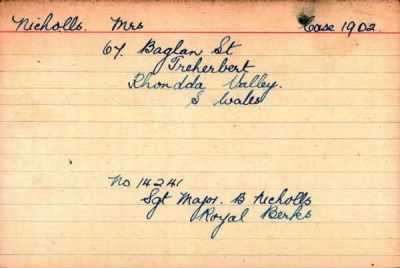 Nicholls. Mrs Case 1902.
67. Baglan St
Treherbert
Rhondda Valley.
S Wales
No 14241
Sgt Major. B Nicholls
Royal Berks